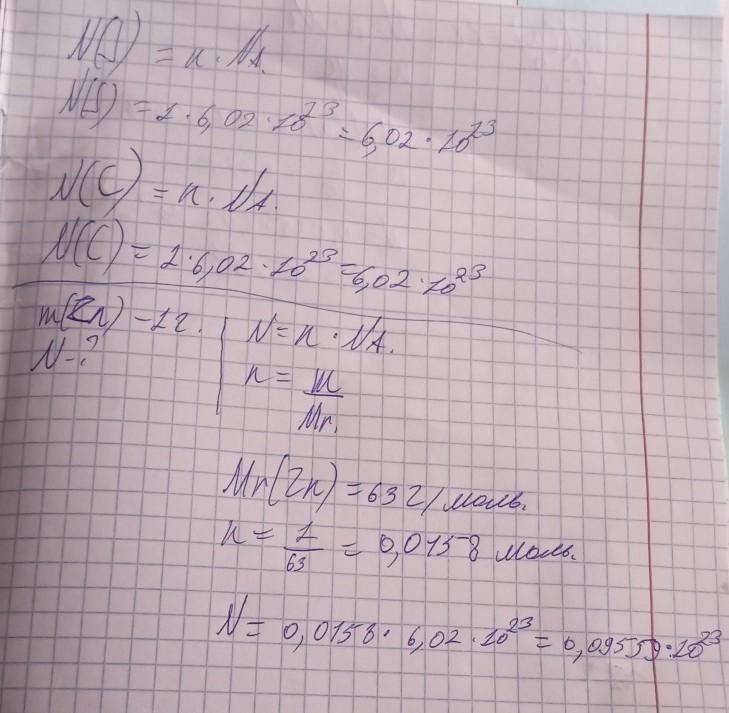 N(S) = n · NA.
N(S) = 1 · 6,02 · 10²³ = 6,02 · 10²³
N(C) = n · NA.
N(C) = 1 · 6,02 · 10²³ = 6,02 · 10²³
m(Zn) - 1г. N = n · NA.
N - ? n = m/Mr.
Mr(Zn) = 63 г/моль.
n = 1/63 = 0,0158 моль.
N = 0,0158 · 6,02 · 10²³ = 0,09559 · 10²³